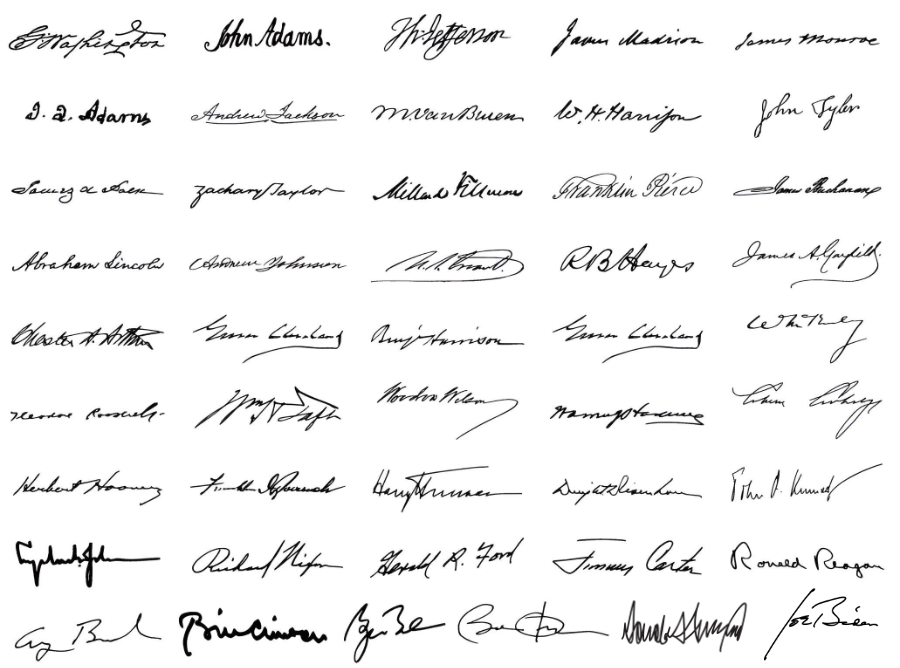 G Washington John Adams. Th Jefferson James Madison James Monroe
J. Q. Adams Andrew Jackson M. Van Buren W. H. Harrison John Tyler
James K Polk Zachary Taylor Millard Fillmore Franklin Pierce James Buchanan
Abraham Lincoln Andrew Johnson U. S. Grant. R B Hayes James A. Garfield.
Chester A. Arthur Grover Cleveland Benj Harrison Grover Cleveland Wm McKinley
Theodore Roosevelt Wm H Taft Woodrow Wilson Warren G Harding Calvin Coolidge
Herbert Hoover Franklin D Roosevelt Harry Truman Dwight D Eisenhower John F. Kennedy
Lyndon B. Johnson Richard Nixon Gerald R. Ford Jimmy Carter Ronald Reagan
Bill Clinton Donald Trump Joe Biden